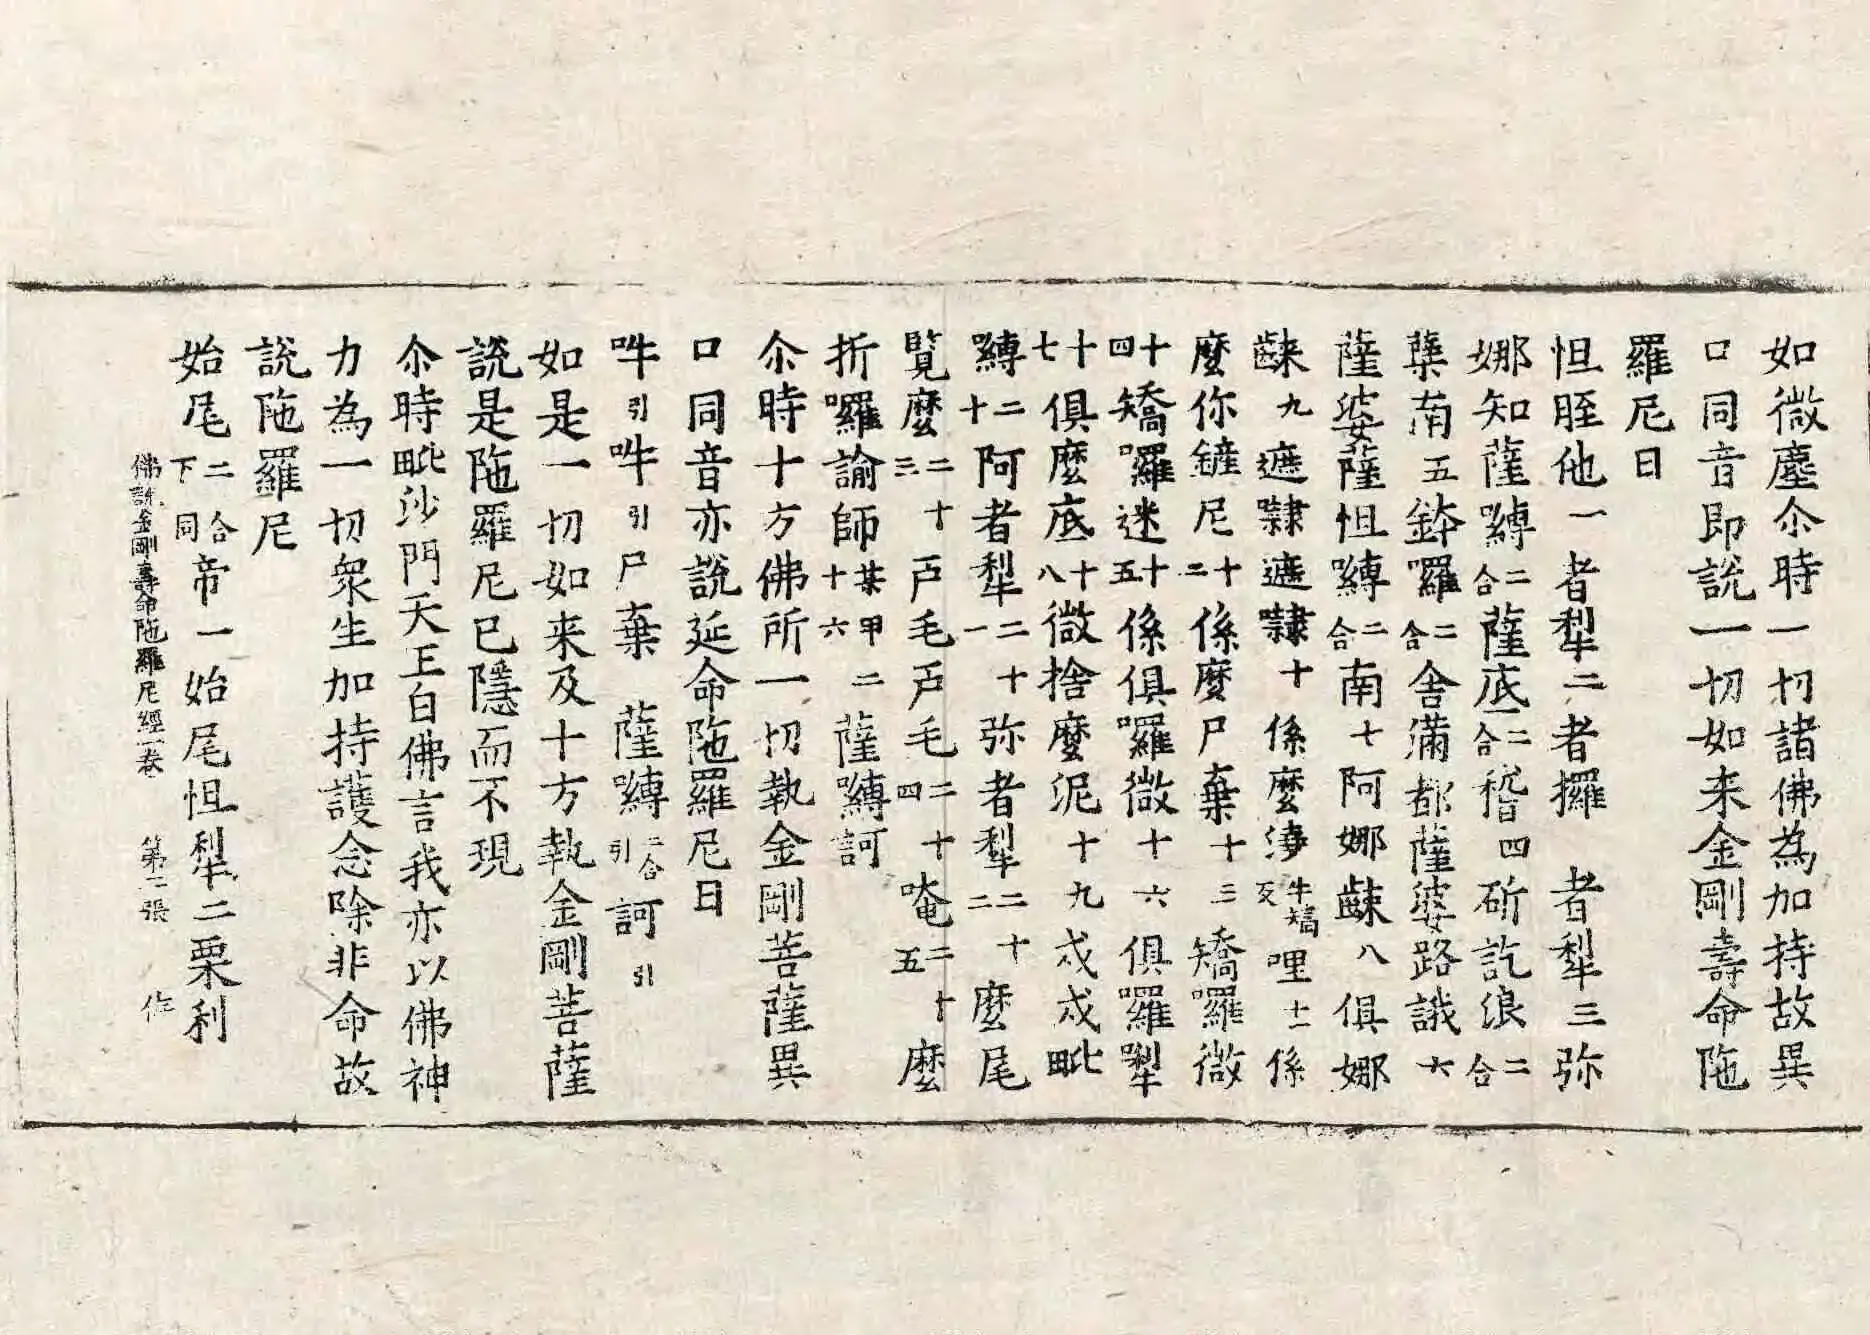 如微塵尒時一切諸佛為加持故異
口同音即説一切如来金剛壽命陁
羅尼曰
怛眰他一者犁二者攞 者犁三弥
娜知薩嚩二合薩底二合稽四斫訖浪二合
蘖南五鉢囉二合舍滿都薩婆路誐六
薩婆薩怛嚩二合南七阿娜䶚八俱娜
䶚九遮㘑遮㘑十係麼 哩十一係
麼你 尼十二係麼尸棄十三矯囉微
十四矯囉迷十五係俱囉微十六俱囉犁
十七俱麼底十八微捨麼泥十九戍戍毗
嚩二十阿者犁二十一弥者犁二十二麼尾
覽麼二十三戸毛戸毛二十四唵二十五麼
折囉諭師某甲二十六薩嚩訶
尒時十方佛所一切執金剛菩薩異
口同音亦説延命陁羅尼曰
吽引吽引尸棄 薩嚩二合引訶引
如是一切如来及十方執金剛菩薩
説是陁羅尼已隱而不現
尒時毗沙門天王白佛言我亦以佛神
力為一切衆生加持護念除非命故
説陁羅尼
始尾二合下同帝一始尾怛犁二栗利
佛説金剛壽命陁羅尼經一卷 第二張 作